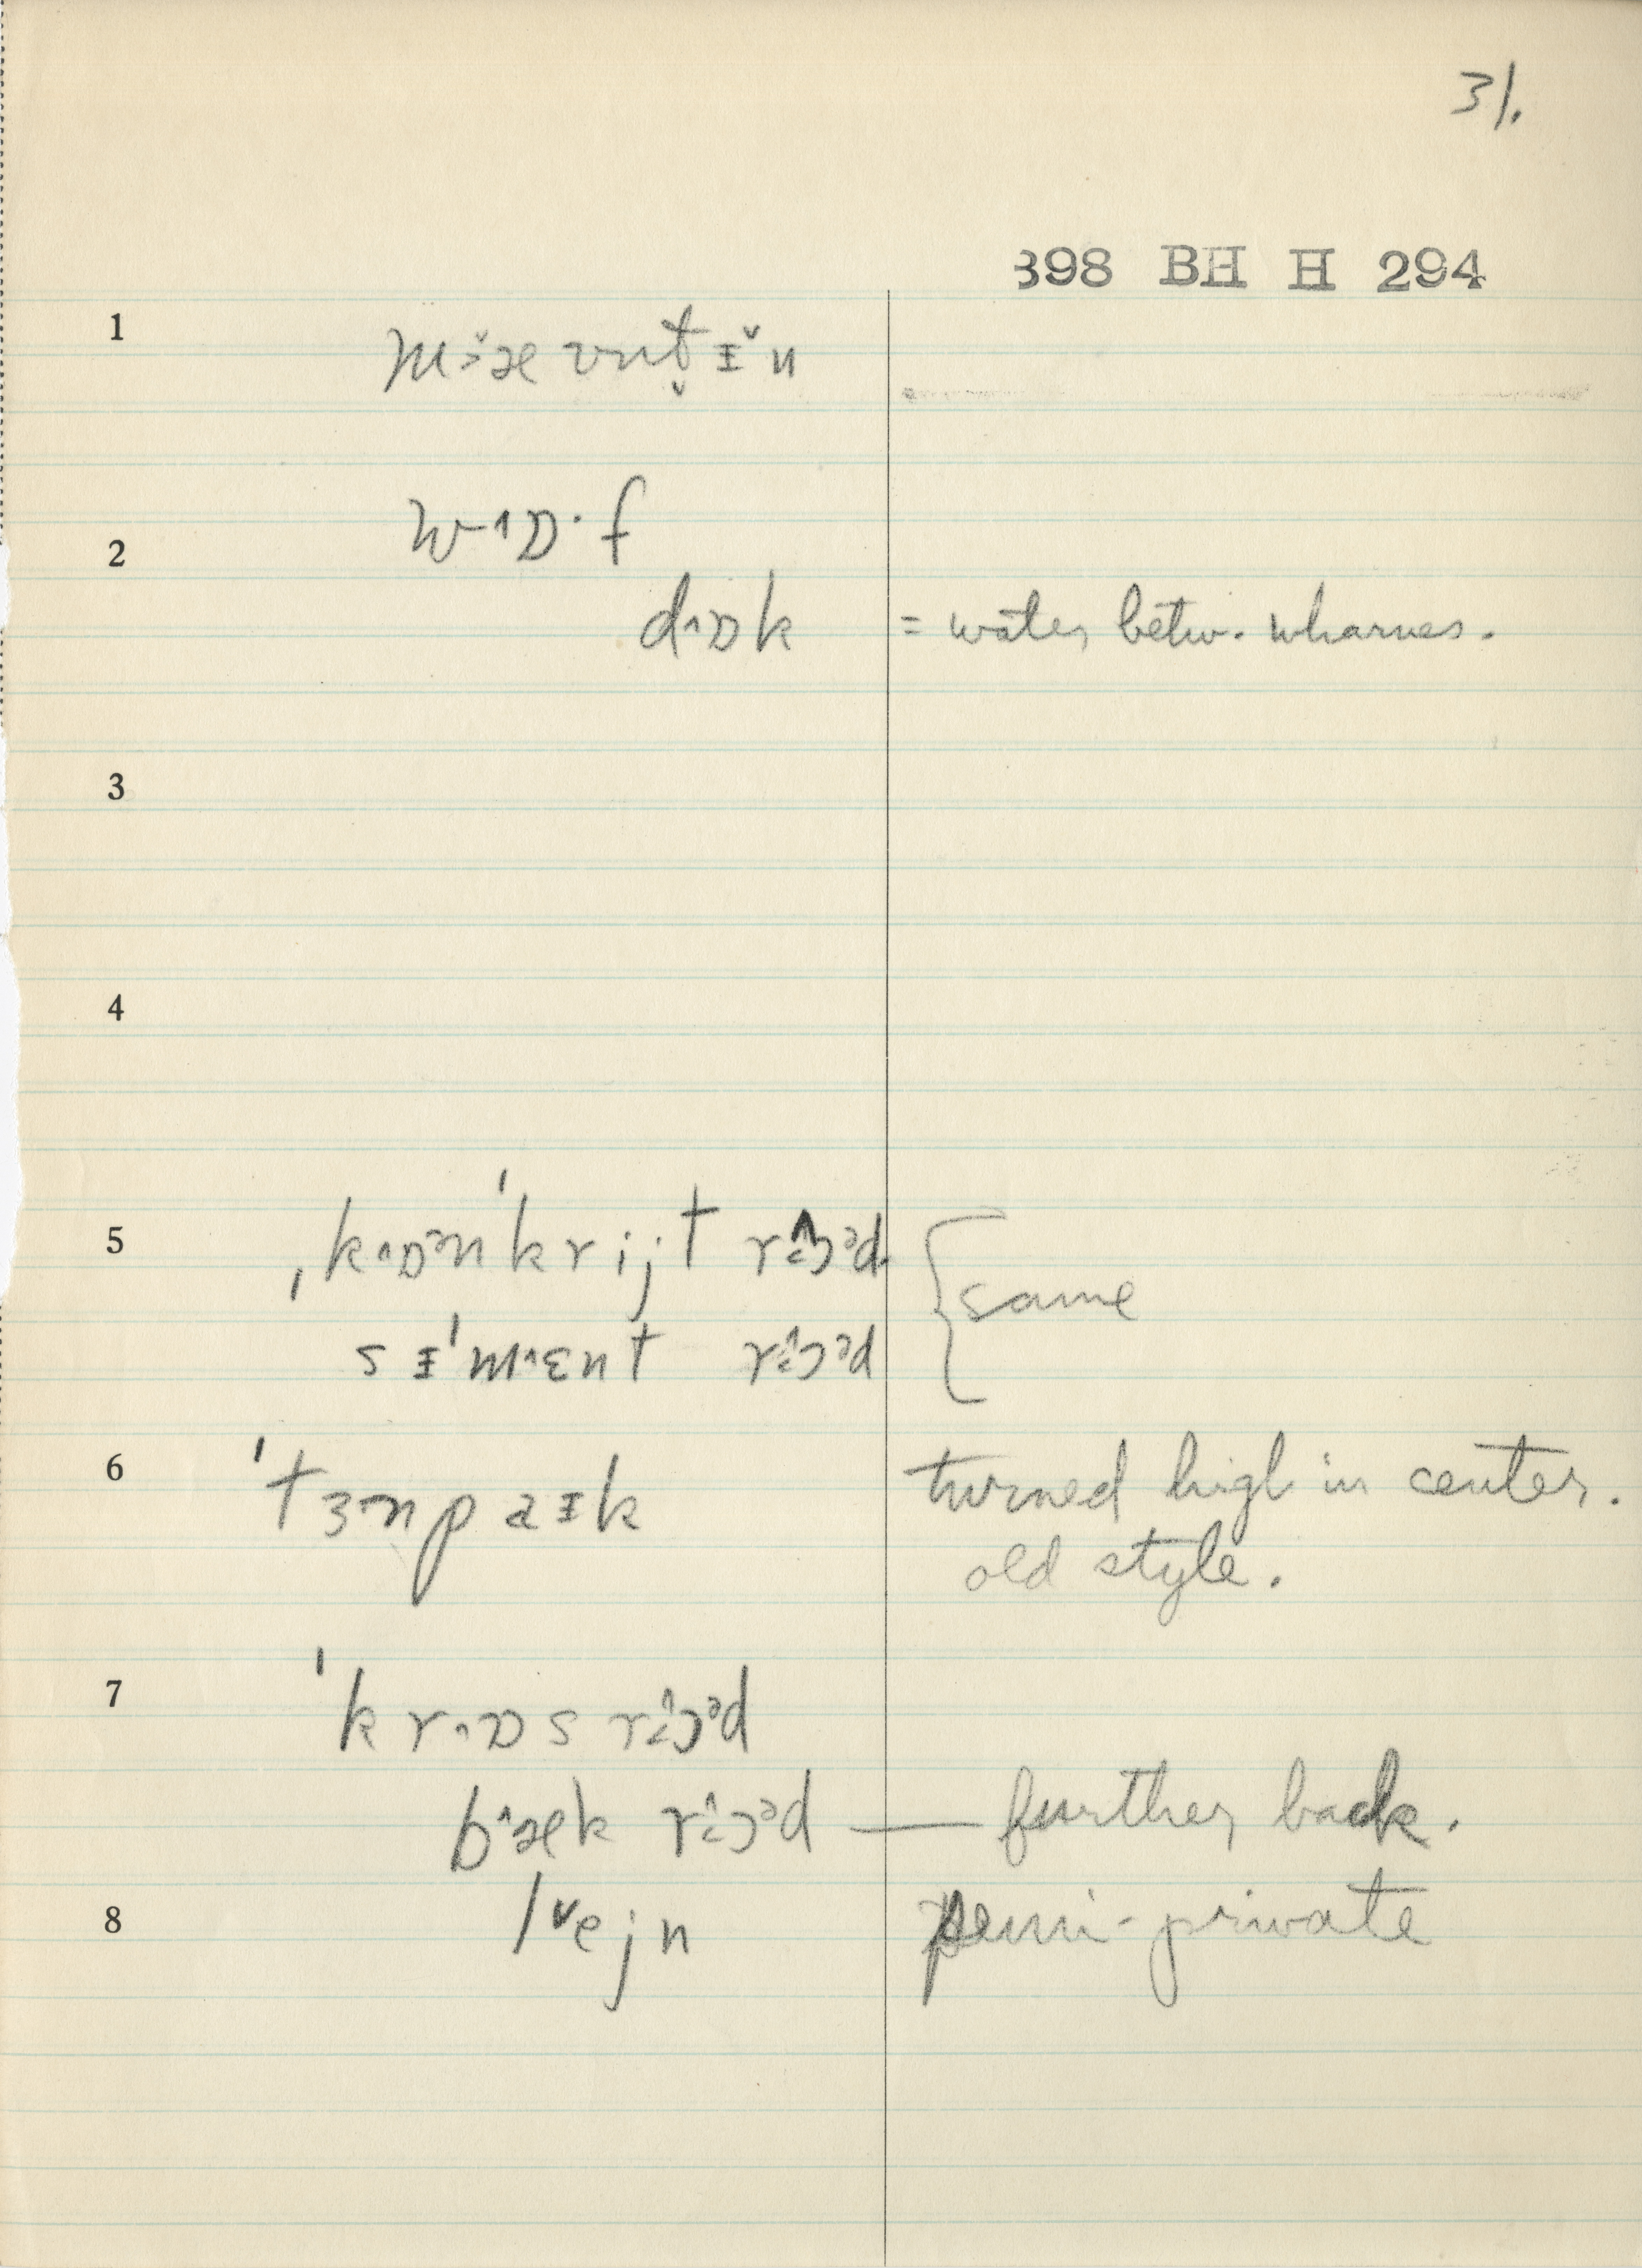 31.
398 BH H 294
1 m˅›æ ʊnt̬ ɪ̌ n
2 w˄ɒ·f
d˄ɒk = water betw. wharves.
3
4
5 ˌk˄ɒᵊnˈkrijt rɔ̂˂·ᵊd
{ same
sɪˈm˄ɛnt rɔ̂˂·ᵊd
6 ˈtɜnpaɪk turned high in center.
old style.
7 ˈkr˄ɒs rɔ̂˂·ᵊd
b˄æk rɔ̂˂·ᵊd — further back.
8 l˅ejn semi-private